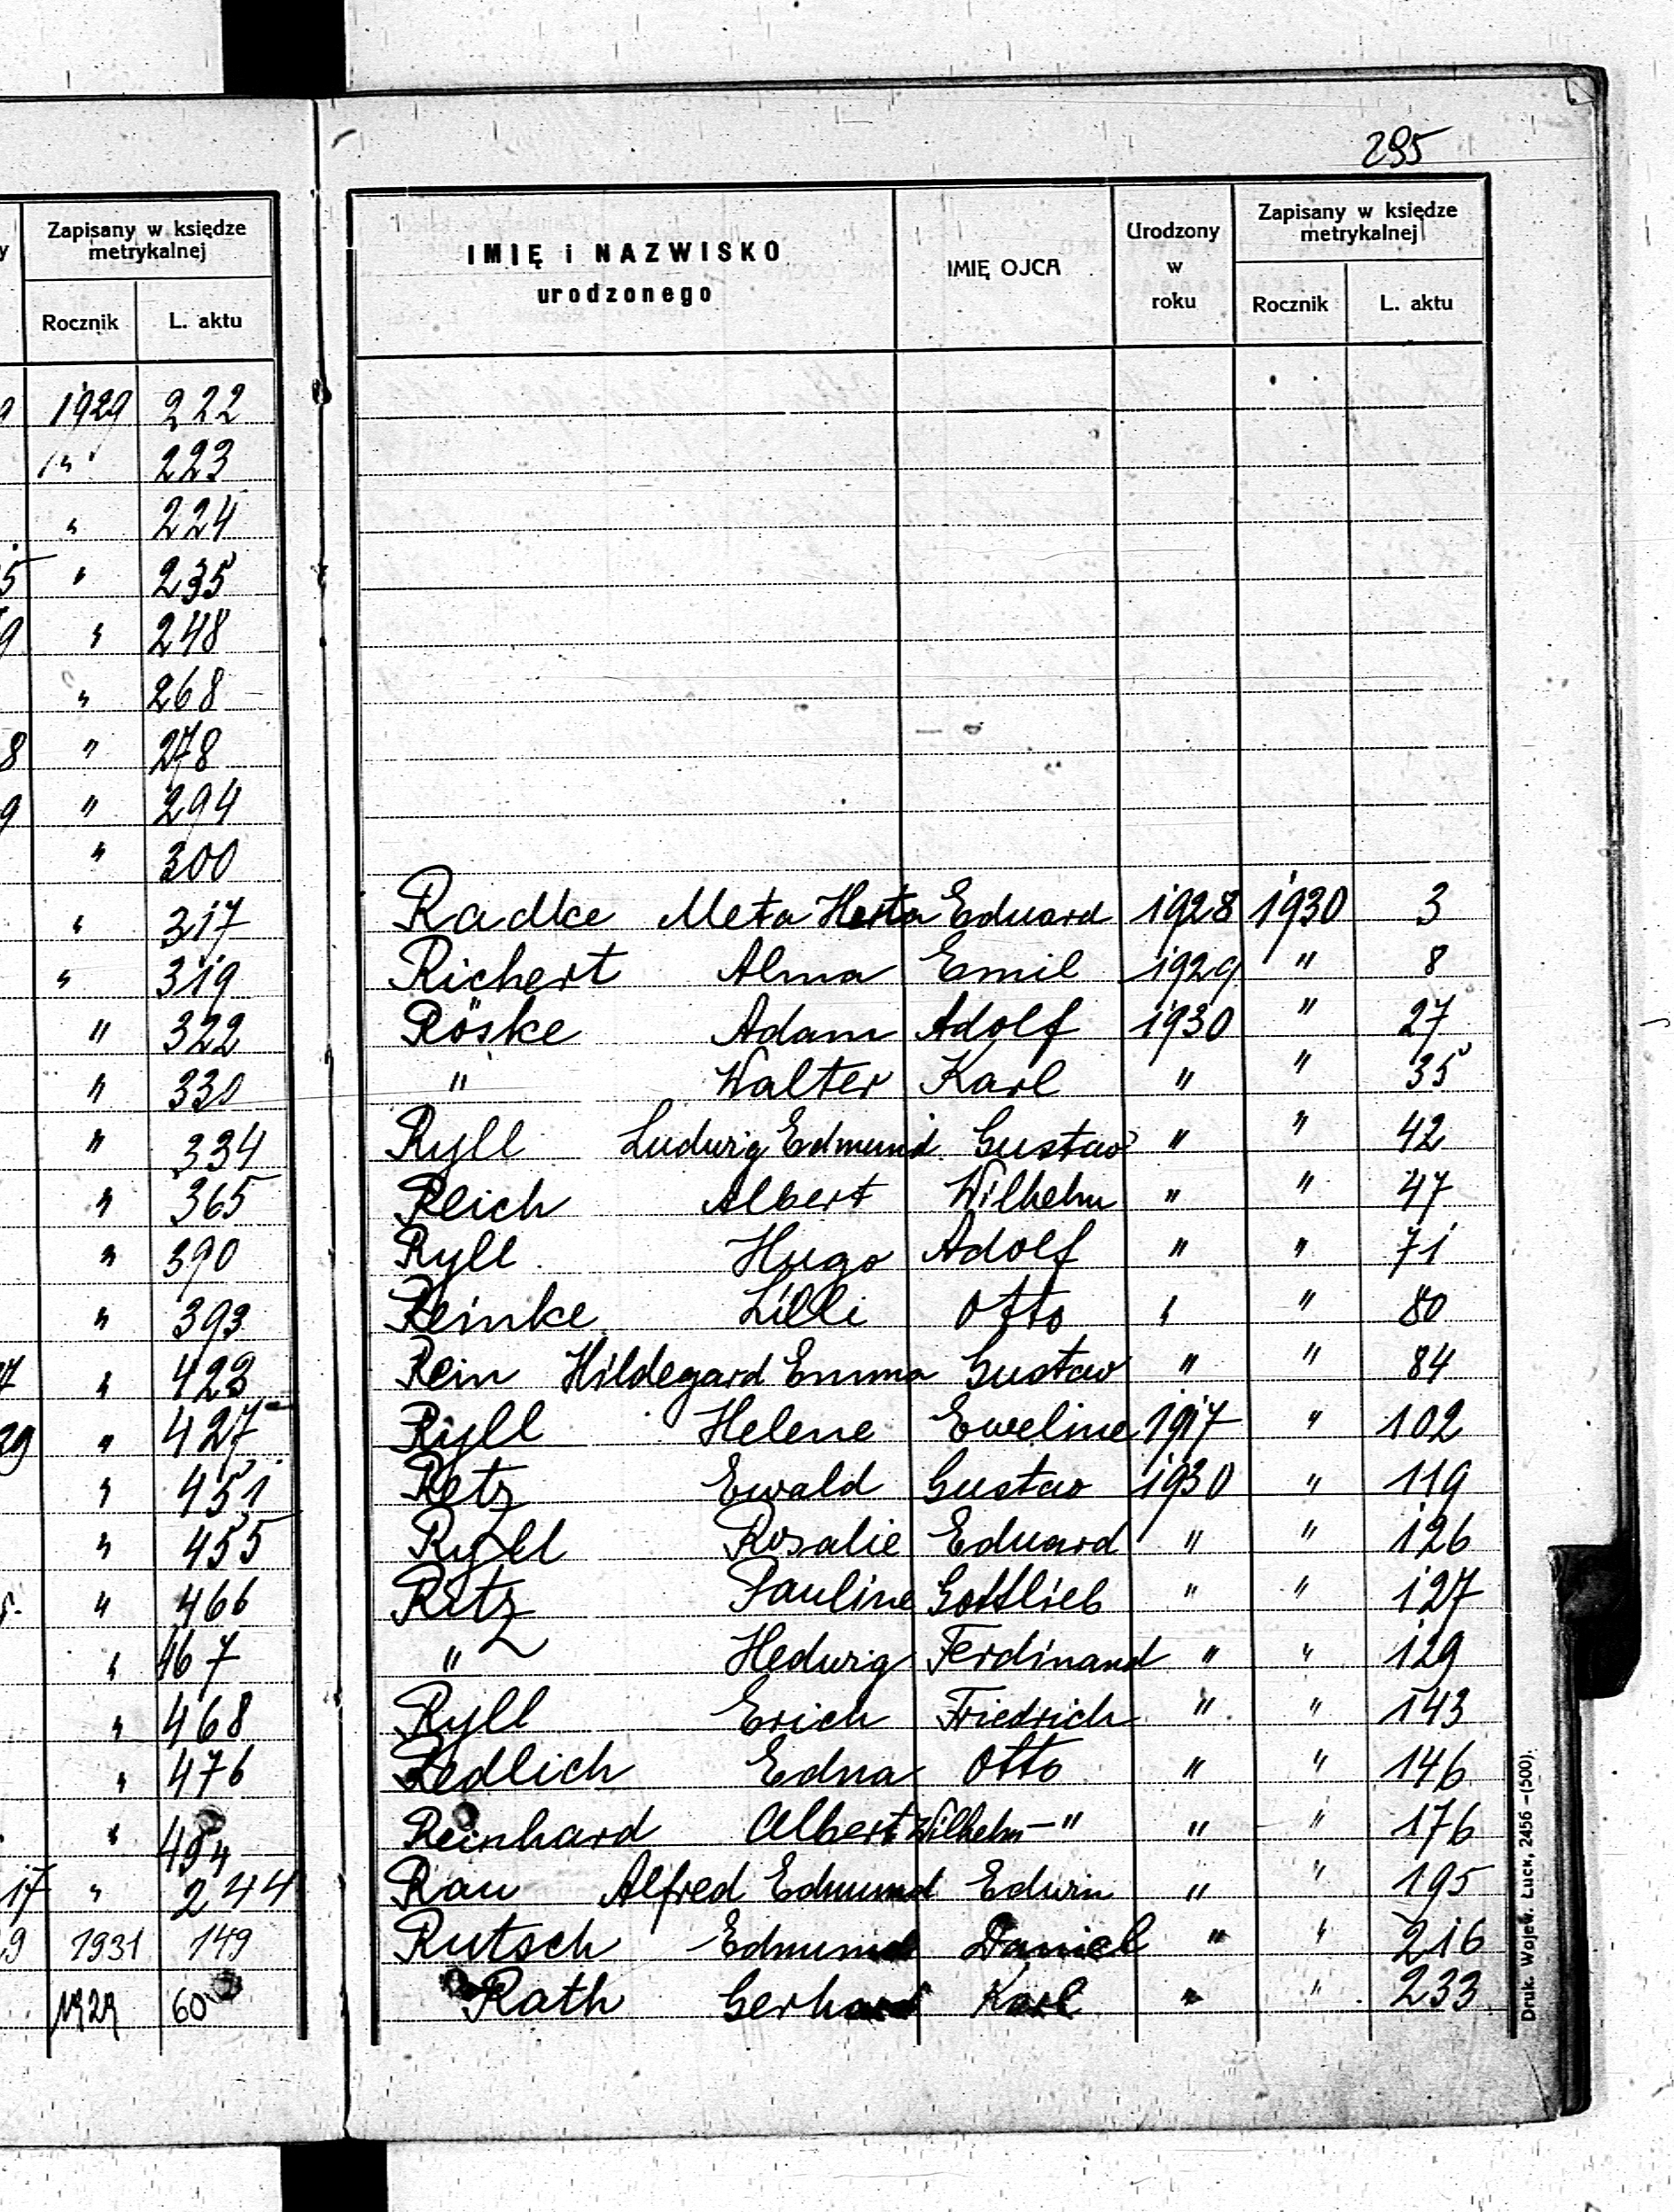 295
y Zapisany w księdze metrykalnej
Rocznik L. aktu
9 1929 222
" 223
" 224
5 " 235
9 " 248
" 268
8 " 278
9 " 294
" 300
" 317
" 319
" 322
" 330
" 334
" 365
" 390
" 393
7 " 423
29 " 427
" 451
" 455
5. " 466
" 467
" 468
" 476
" 494
17 " 244
9 1931 149
1929 60
IMIĘ i NAZWISKO urodzonego IMIĘ OJCA Urodzony w roku Zapisany w księdze metrykalnej
Rocznik L. aktu
Radke Meta Herta Eduard 1928 1930 3
Richert Alma Emil 1929 " 8
Röske Adam Adolf 1930 " 27
" Walter Karl " " 35
Ryll Ludwig Edmund Gustaw " " 42
Reich Albert Wilhelm " " 47
Ryll Hugo Adolf " " 71
Reinke Lilli Otto " " 80
Rein Hildegard Emma Gustaw " " 84
Ryll Helene Eweline 1917 " 102
Retz Ewald Gustav 1930 " 119
Ryll Rosalie Eduard " " 126
Ritz Pauline Gottlieb " " 127
" Hedwig Ferdinand " " 129
Ryll Erich Friedrich " " 143
Redlich Edna Otto " " 146
Reinhard Albert Wilhelm - " " " 176
Rau Alfred Edmund Edwin " " 195
Rutsch Edmund Daniel " " 216
Rath Gerhard Karl " " 233
Druk. Wojew. Łuck, 2456 -(500).